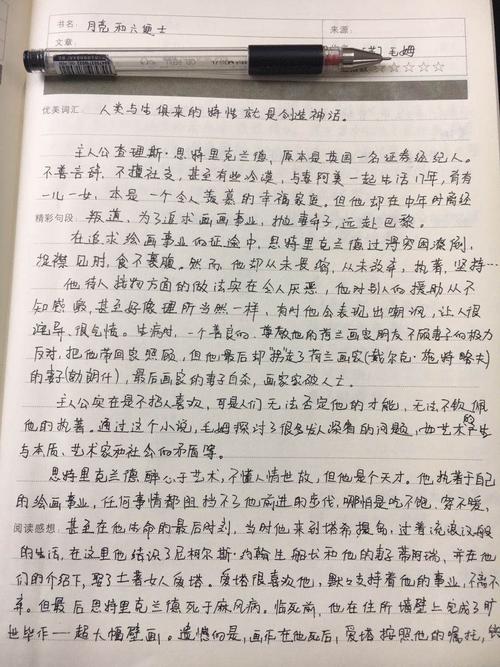 书名: 月亮和六便士
来源:
文章:
[英] 毛姆
☆☆☆☆☆
优美词汇: 人类与生俱来的特性就是创造神话。
主人公查理斯·思特里克兰德,原本是英国一名证券经纪人。
不善言辞,不擅社交,甚至有些冷漠,与妻阿美一起生活17年,育有
一儿一女,本是一个令人羡慕的幸福家庭。但他却在中年时离经
精彩句段: 叛道,为了追求画画事业,抛妻弃子,远赴巴黎。
在追求绘画事业的征途中,思特里克兰德过得穷困潦倒,
捉襟见肘,食不裹腹。然而,他却从未畏缩,从未放弃,执著,坚持…
他待人接物方面的做法实在令人厌恶,他对别人的援助从不
知感激,甚至好像理所当然一样,有时他会表现出嘲讽,让人很
诧异、很气愤。生病时,一个善良的、尊敬他的荷兰画家朋友不顾妻子的极力
反对,把他带回家照顾,但他最后却“拐”走了荷兰画家(戴尔克·施特略夫)
的妻子(勃朗什),最后画家的妻子自杀,画家家破人亡。
主人公实在是不招人喜欢,可是人们无法否定他的才能,无法不钦佩
他的执著。通过这个小说,毛姆探讨了很多发人深省的问题,如艺术的产生
与本质、艺术家和社会的矛盾等。
思特里克兰德醉心于艺术,不懂人情世故,但他是个天才。他执著于自己
的绘画事业,任何事情都阻挡不了他前进的步伐,哪怕是吃不饱,穿不暖,
阅读感想: 甚至在他生命的最后时刻,当时他来到塔希提岛,过着流浪汉般
的生活,在这里他结识了尼柯尔斯·约翰生船长和他的妻子蒂阿瑞,并在他
们的介绍下,娶了土著女人爱塔。爱塔很喜欢他,默默支持着他的事业,不离不
弃。但最后思特里克兰德死于麻风病。临死前,他在住所墙壁上完成了旷
世毕作——超大幅壁画。遗憾的是,画作在他死后,爱塔按照他的嘱托,